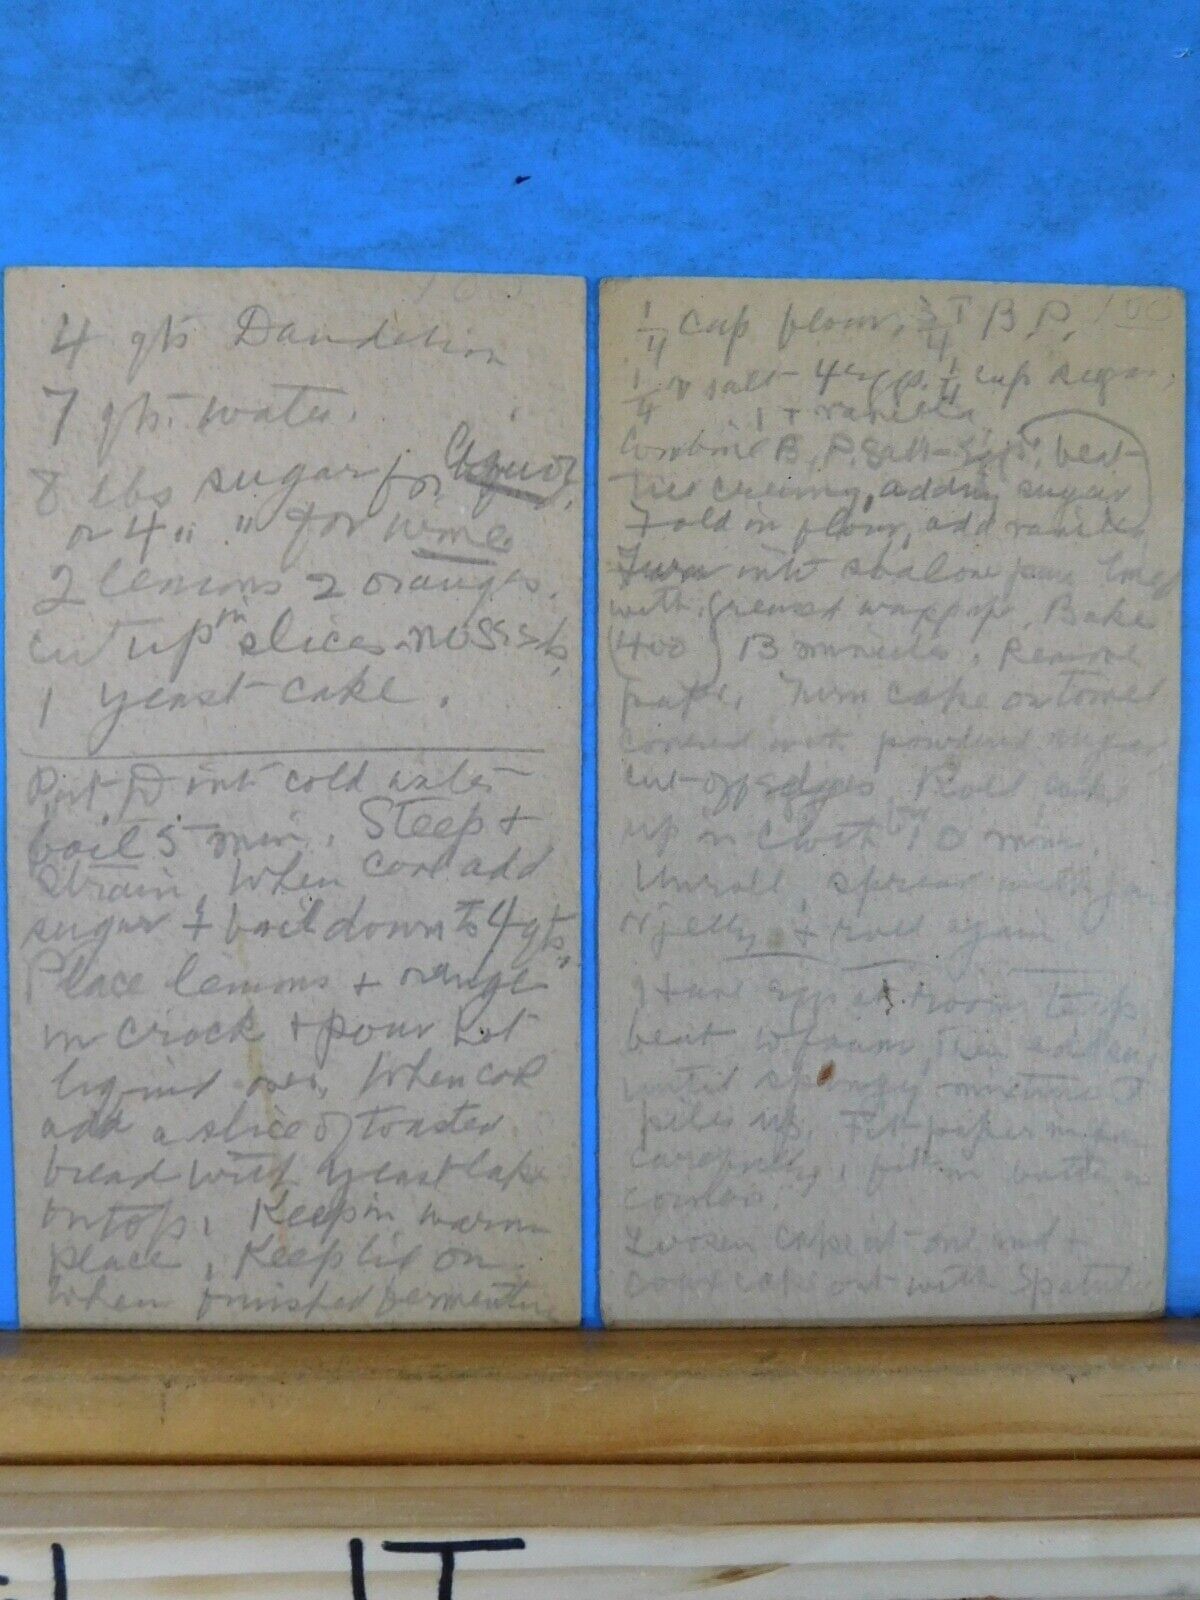 4 qts Dandelion
7 qts. water.
8 lbs sugar for liquor,
or 4 " " for wine
2 lemons 2 oranges.
cut up in slices - no seeds,
1 yeast cake.
Put D into cold water
boil 5 min. Steep +
strain, When cool add
sugar & boil down to 4 qts.
Place lemons + orange
in crock + pour hot
liquid over, When cool
add a slice of toasted
bread with yeast cake
on top. Keep in warm
place, Keep lid on
When finished fermenting
1/4 cup flour, 3/4 T B.P. 100
1/4 " salt - 4 eggs. 1/4 cup sugar,
1 t vanilla,
Combine B.P. salt - eggs, beat
till creamy, adding sugar
Fold in flour, add vanilla
Turn into shalow pan lined
with greased wax pap. Bake
(400) 13 minutes. Remove
paper. Turn cake on towel
covered with powdered sugar
cut off edges Roll cake
up in cloth for 10 min.
Unroll, spread with jam
or jelly & roll again
Have eggs at room temp
beat to foam, then add sug
until spongy mixture
piles up. Fit paper in pan
carefully, fill in batter in
corners.
Loosen cake at one end +
cake out with Spatula
IT